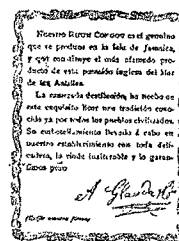 Nuestro Rhum Congos es el genuino
que se produce en la Isla de Jamaica,
y que constituye el más afamado pro-
ducto de esta posesión inglesa del Mar
de las Antillas.
La esmerada destilación ha hecho de
este exquisito licor una tradición cono-
cida ya por todos los pueblos civilizados.
Su embotellamiento llevado á cabo en
nuestro establecimiento con toda deli-
cadeza, lo rinde inalterable y lo garan-
timos puro